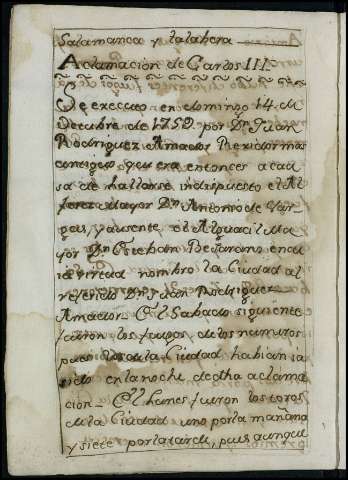 Salamanca y talabera
Aclamacion de Carlos III.
Se executo en domingo 14 de
Octubre de 1759. por Dn Juan
Rodriguez Amador Rexidor mas
antiguo que era entonces a cau
sa de hallarse indispuesto el Al
ferez Mayor Dn Antonio de Var
gas, y ausente el Alguacil Ma
yor Dn Esteban Bejarano en cu
ia virtud nombro la Ciudad al
referido Dn Juan Rodriguez
Amador. El Sabado siguiente
fueron los fuegos de los
pues los de la Ciudad habian ia
sido en la noche de dha aclama
cion_ El lunes fueron los toros
de la Ciudad uno por la mañana
y siete por la tarde, pues aunque